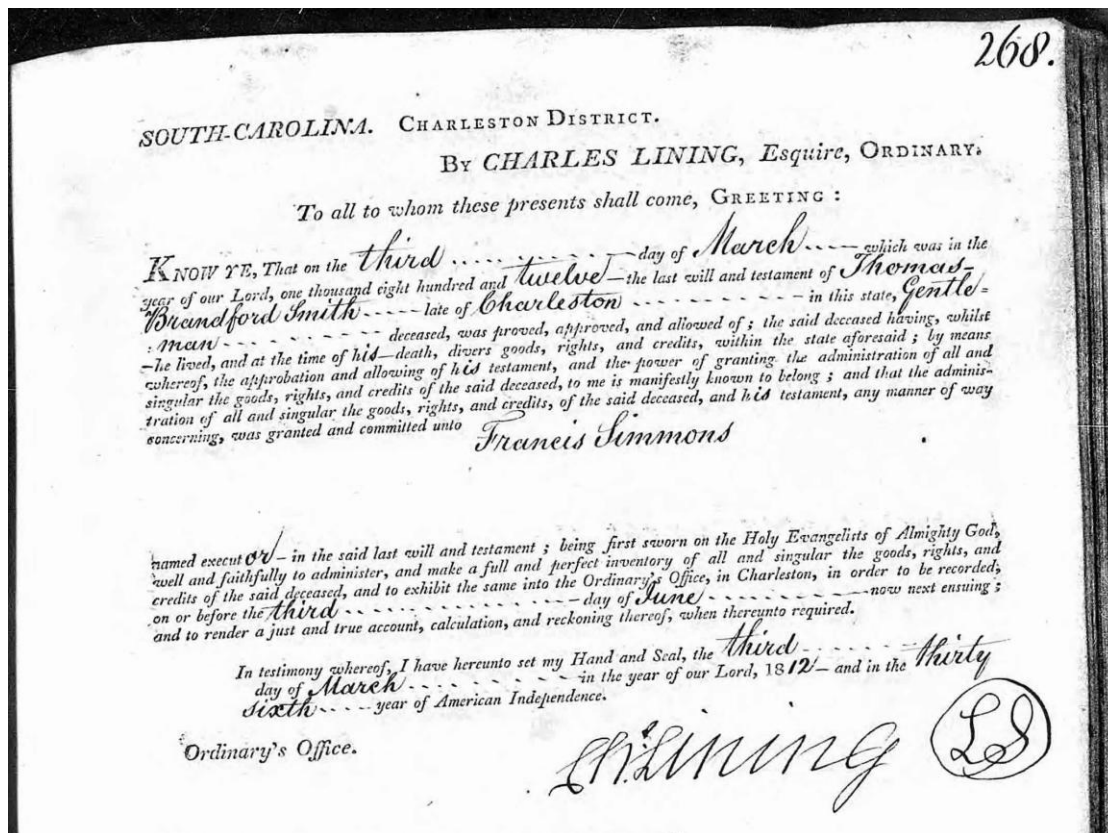 268.
SOUTH-CAROLINA. CHARLESTON DISTRICT.
BY CHARLES LINING, Esquire, ORDINARY.
To all to whom these presents shall come, GREETING :
KNOW YE, That on the third day of March which was in the
year of our Lord, one thousand eight hundred and twelve the last will and testament of Thomas
Brandford Smith late of Charleston in this state, Gentle=
man deceased, was proved, approved, and allowed of ; the said deceased having, whilst
he lived, and at the time of his death, divers goods, rights, and credits, within the state aforesaid ; by means
whereof, the approbation and allowing of his testament, and the power of granting the administration of all and
singular the goods, rights, and credits of the said deceased, to me is manifestly known to belong ; and that the adminis-
tration of all and singular the goods, rights, and credits, of the said deceased, and his testament, any manner of way
concerning, was granted and committed unto Francis Simmons
named executor in the said last will and testament ; being first sworn on the Holy Evangelists of Almighty God,
well and faithfully to administer, and make a full and perfect inventory of all and singular the goods, rights, and
credits of the said deceased, and to exhibit the same into the Ordinary's Office, in Charleston, in order to be recorded,
on or before the third day of June now next ensuing ;
and to render a just and true account, calculation, and reckoning thereof, when thereunto required.
In testimony whereof, I have hereunto set my Hand and Seal, the third
day of March in the year of our Lord, 1812 and in the thirty
sixth year of American Independence.
Ordinary's Office.
Chs. Lining LS